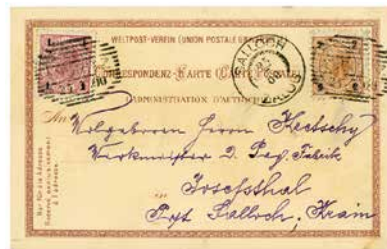 WELTPOST-VEREIN (UNION POSTALE
CORRESPONDENZ-KARTE (CARTE POSTALE)
ADMINISTRATION D'AUTRICHE
SALLOCH
An Wolgeboren Herrn
Werkmeister d. Pap. Fabrik
in Josefsthal
Post Salloch, Krain
Nur für die Adresse.